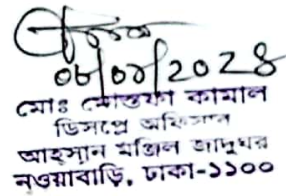 ০৮/০৯/২০২৪
মোঃ মোস্তফা কামাল
ডিসপ্লে অফিসার
আহসান মঞ্জিল জাদুঘর
নওয়াবাড়ি, ঢাকা-১১০০